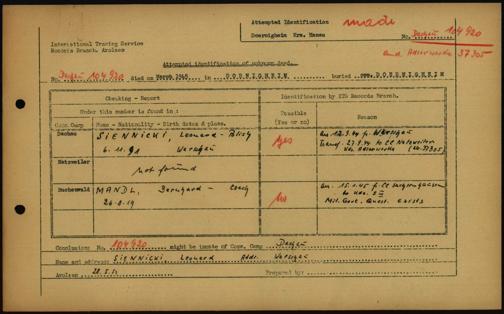 Attempted Identification
made
Doernigheim Krs. Hanau
No. Dachau 104920
and Adlerwerke 37305
International Tracing Service
Records Branch, Arolsen
Attempted identification of unknown dead.
No. Dachau 104920 died on March 1945 in DOERNIGHEIM buried cem. DOERNIGHEIM
Checking - Report
Identification by ITS Records Branch.
Under this number is found in:
Possible
(Yes or no)
Reason
Conc Camp
Name - Nationality - Birth dates & place.
Dachau
SIENNICKI, Leonard - Polish
6.11.91 Warschau
yes
arr. 12.9.44 fr. Warschau
Transf. 27.9.44 to CC Natzweiler
Kdo. Adlerwerke (No. 37305)
Natzweiler
not found
Buchenwald
MANDL, Bernhard - Czech
26.8.19
no
arr. 15.1.45 fr. CC Sachsenhausen
to Kdo. S III
Mil. Govt. Quest. exists
Conclusions No. 104920 might be inmate of Conc. Camp Dachau
Name and address: SIENNICKI, Leonard Addr. Warschau
Arolsen 28.5.51 Prepared by: